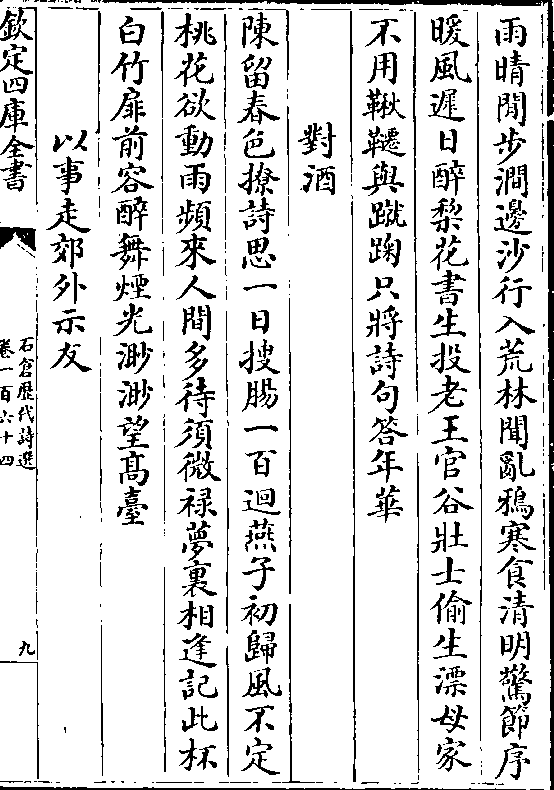 雨晴閒步澗邊沙行入荒林聞亂鴉寒食清明驚節序
暖風遲日醉梨花書生投老王官谷壯士偷生漂母家
不用鞦韆與蹴踘只將詩句答年華
對酒
陳留春色撩詩思一日搜腸一百迴燕子初歸風不定
桃花欲動雨頻來人間多待須微禄夢裏相逢記此杯
白竹扉前容醉舞煙光渺渺望髙臺
以事走郊外示友
欽定四庫全書
石倉歴代詩選
卷一百六十四
九